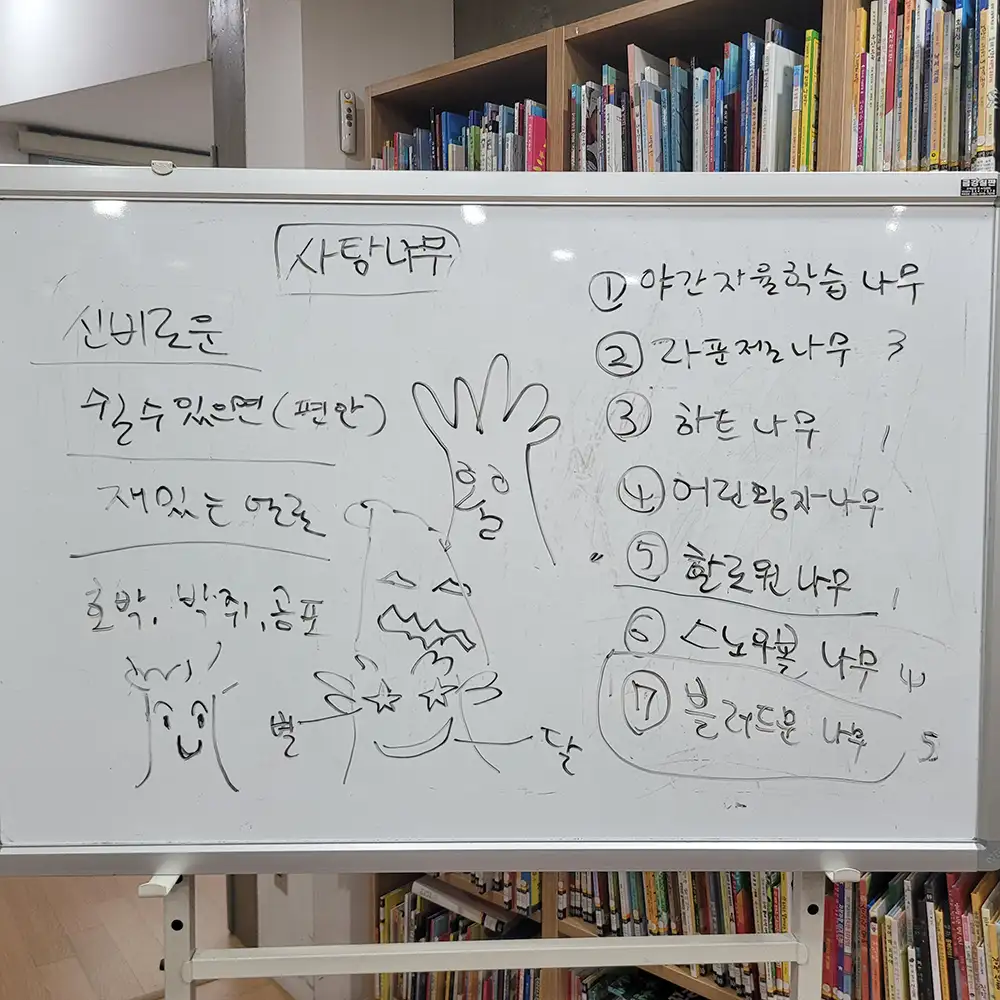 사탕나무
신비로운
쉴 수 있으면 (편안)
재밌는 얼굴
호박, 박쥐, 공포
별
달
① 야간자율학습 나무
② 라푼젤 나무 3
③ 하트 나무 1
④ 어린왕자 나무
⑤ 할로윈 나무 1
⑥ 스노우볼 나무 4
⑦ 블러드문 나무 5
금강칠판